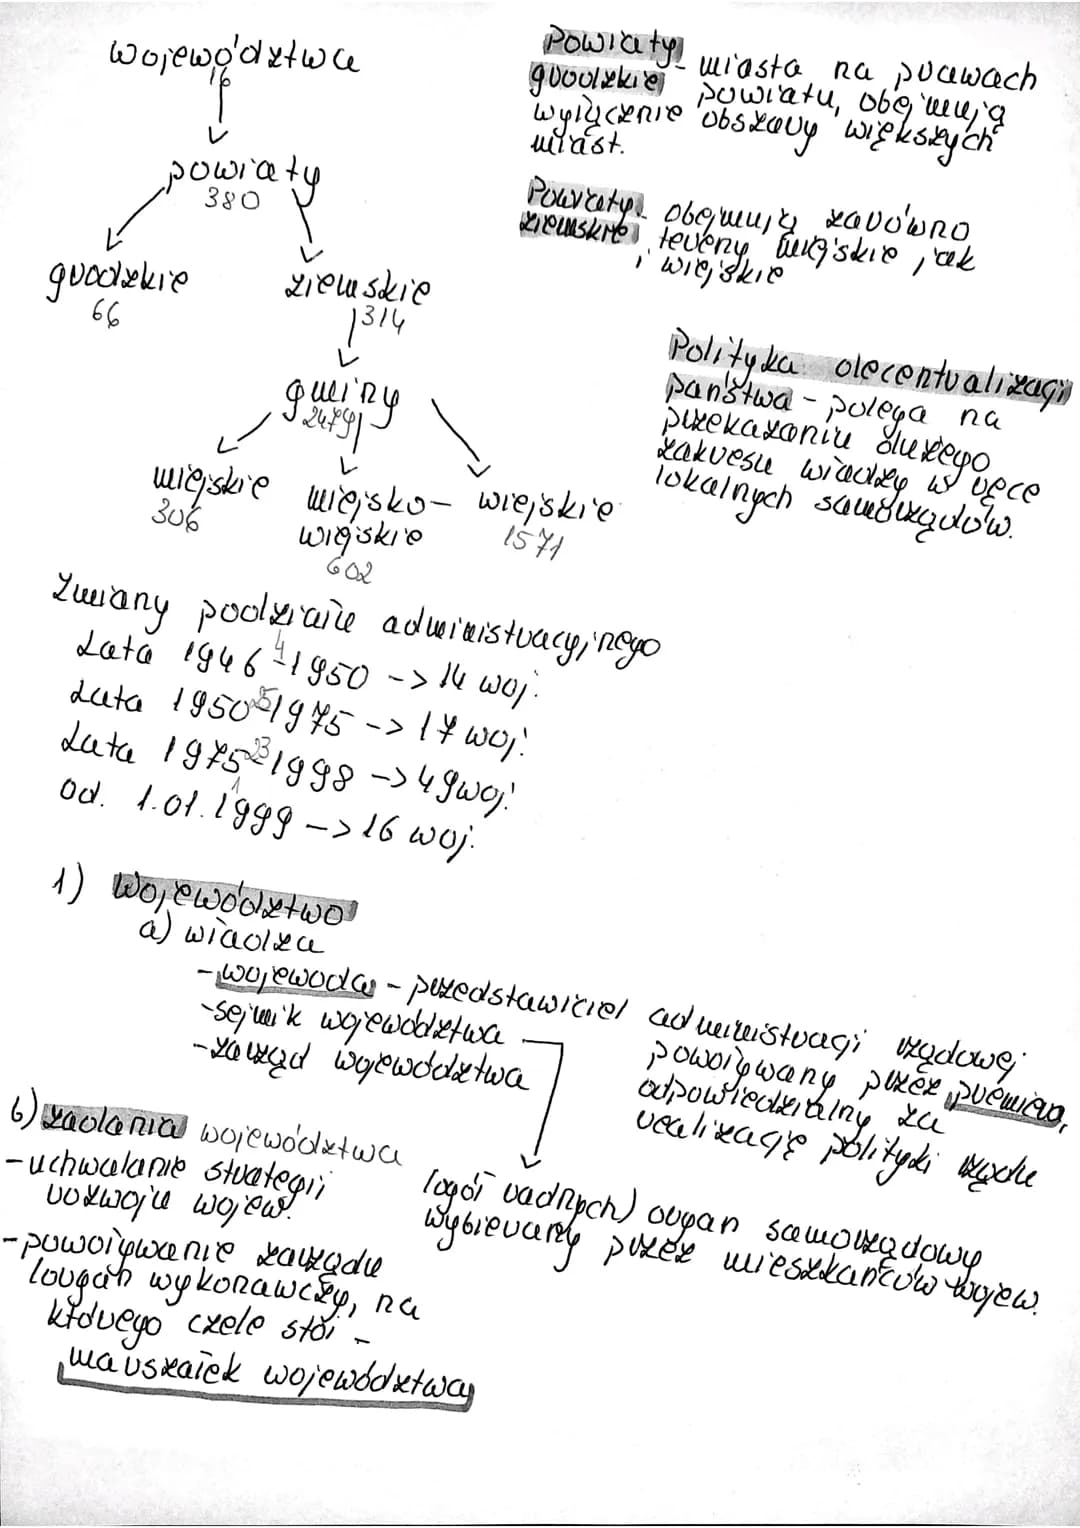 województwa
16
powiaty
380
grodzkie
66
ziemskie
314
gminy
2479
miejskie
306
miejsko-
wiejskie
602
wiejskie
1571
Powiaty
grodzkie - miasta na prawach
powiatu, obejmują
wyłącznie obszary większych
miast.
Powiaty
ziemskie - obejmują zarówno
tereny miejskie, jak
i wiejskie
Polityka decentralizacji
państwa - polega na
przekazaniu dużego
zakresu władzy w ręce
lokalnych samorządów.
Zmiany podziału administracyjnego
Lata 1946 4 - 1950 -> 14 woj.
Lata 1950 25 - 1975 -> 17 woj.
Lata 1975 23 - 1998 -> 49 woj.
od. 1.01.1999 -> 16 woj.
1
1) Województwo
a) władza
- wojewoda - przedstawiciel administracji rządowej
powoływany przez premiera,
odpowiedzialny za
realizację polityki rządu
- sejmik województwa
- zarząd województwa
(ogół radnych) organ samorządowy
wybierany przez mieszkańców wojew.
b) zadania województwa
- uchwalanie strategii
rozwoju wojew.
- powoływanie zarządu
(organ wykonawczy, na
którego czele stoi -
marszałek województwa)